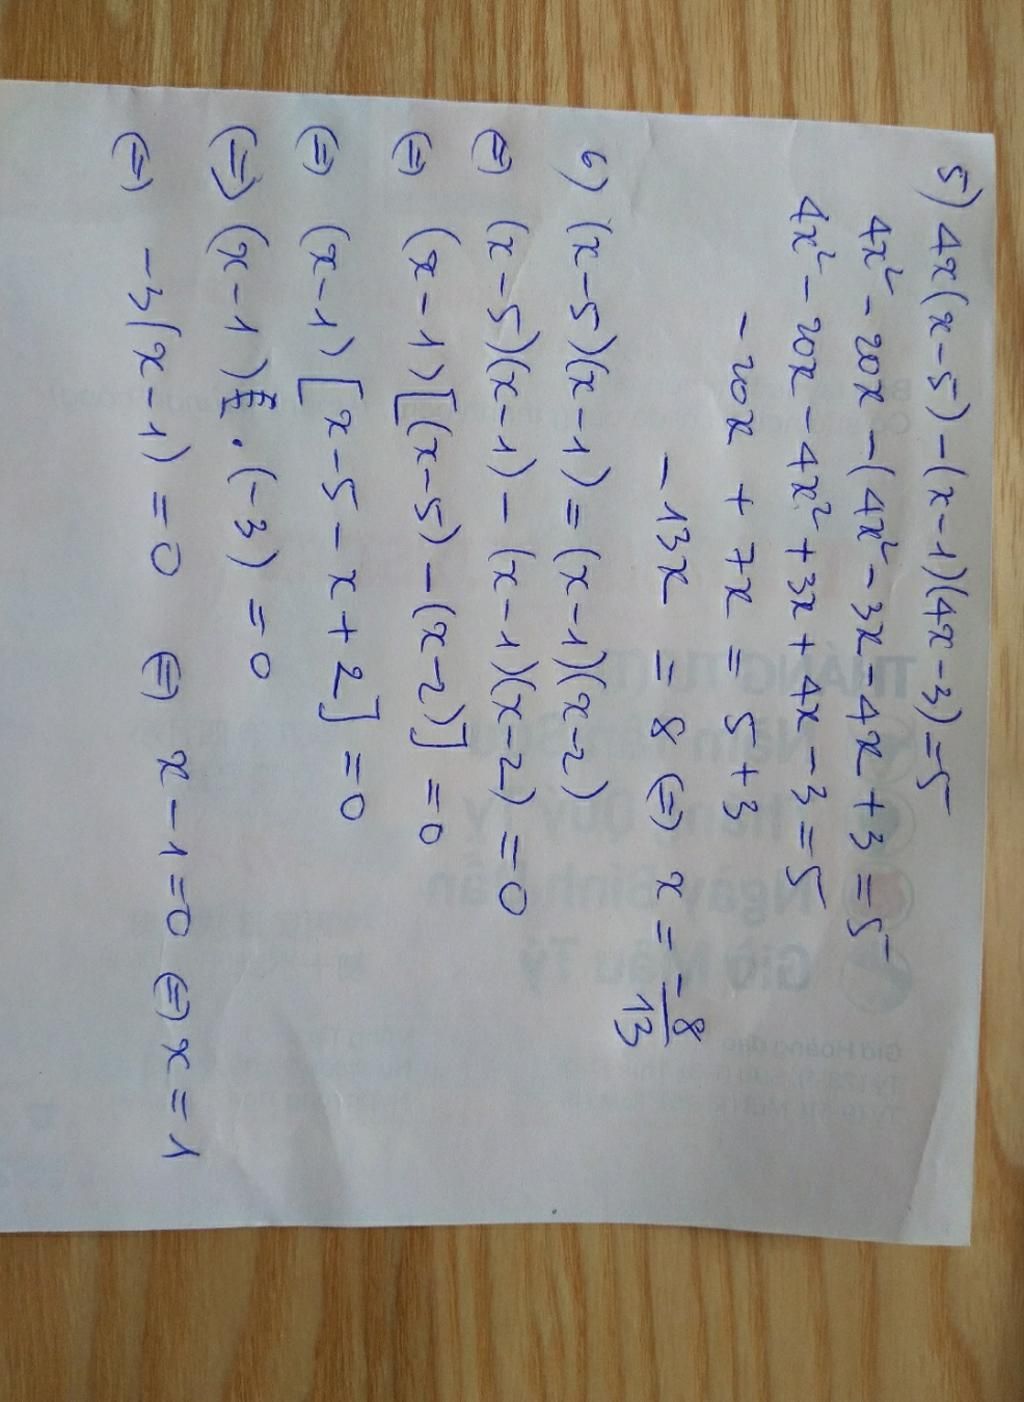 5) 4x(x-5)-(x-1)(4x-3)=5
4x² - 20x - (4x² - 3x - 4x + 3 = 5
4x² - 20x - 4x² + 3x + 4x - 3 = 5
- 20x + 7x = 5 + 3
- 13x = 8 (=) x = -8/13
6) (x-5)(x-1) = (x-1)(x-2)
(=) (x-5)(x-1) - (x-1)(x-2) = 0
(=) (x-1)[(x-5) - (x-2)] = 0
(=) (x-1)[x-5-x+2] = 0
(=) (x-1) . (-3) = 0
(=) -3(x-1) = 0 (=) x-1=0 (=) x = 1